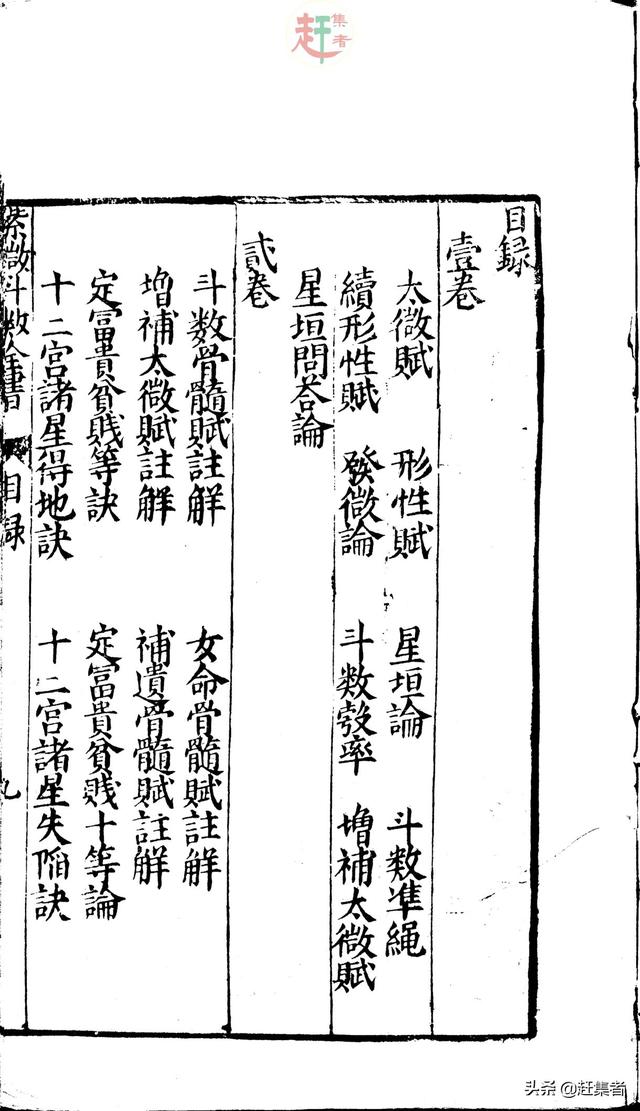 赶集者
目録
壹卷
太微賦 形性賦 星垣論 斗数準繩
續形性賦 發微論 斗数彀率 增補太微賦
星垣問荅論
貳卷
斗数骨髓賦註解 女命骨髓賦註解
增補太微賦註解 補遺骨髓賦註解
定冨貴貧賎等訣 定冨貴貧賎十等論
十二宮諸星得地訣 十二宮諸星失陥訣
紫微斗数全書 目録 九
头条@赶集者